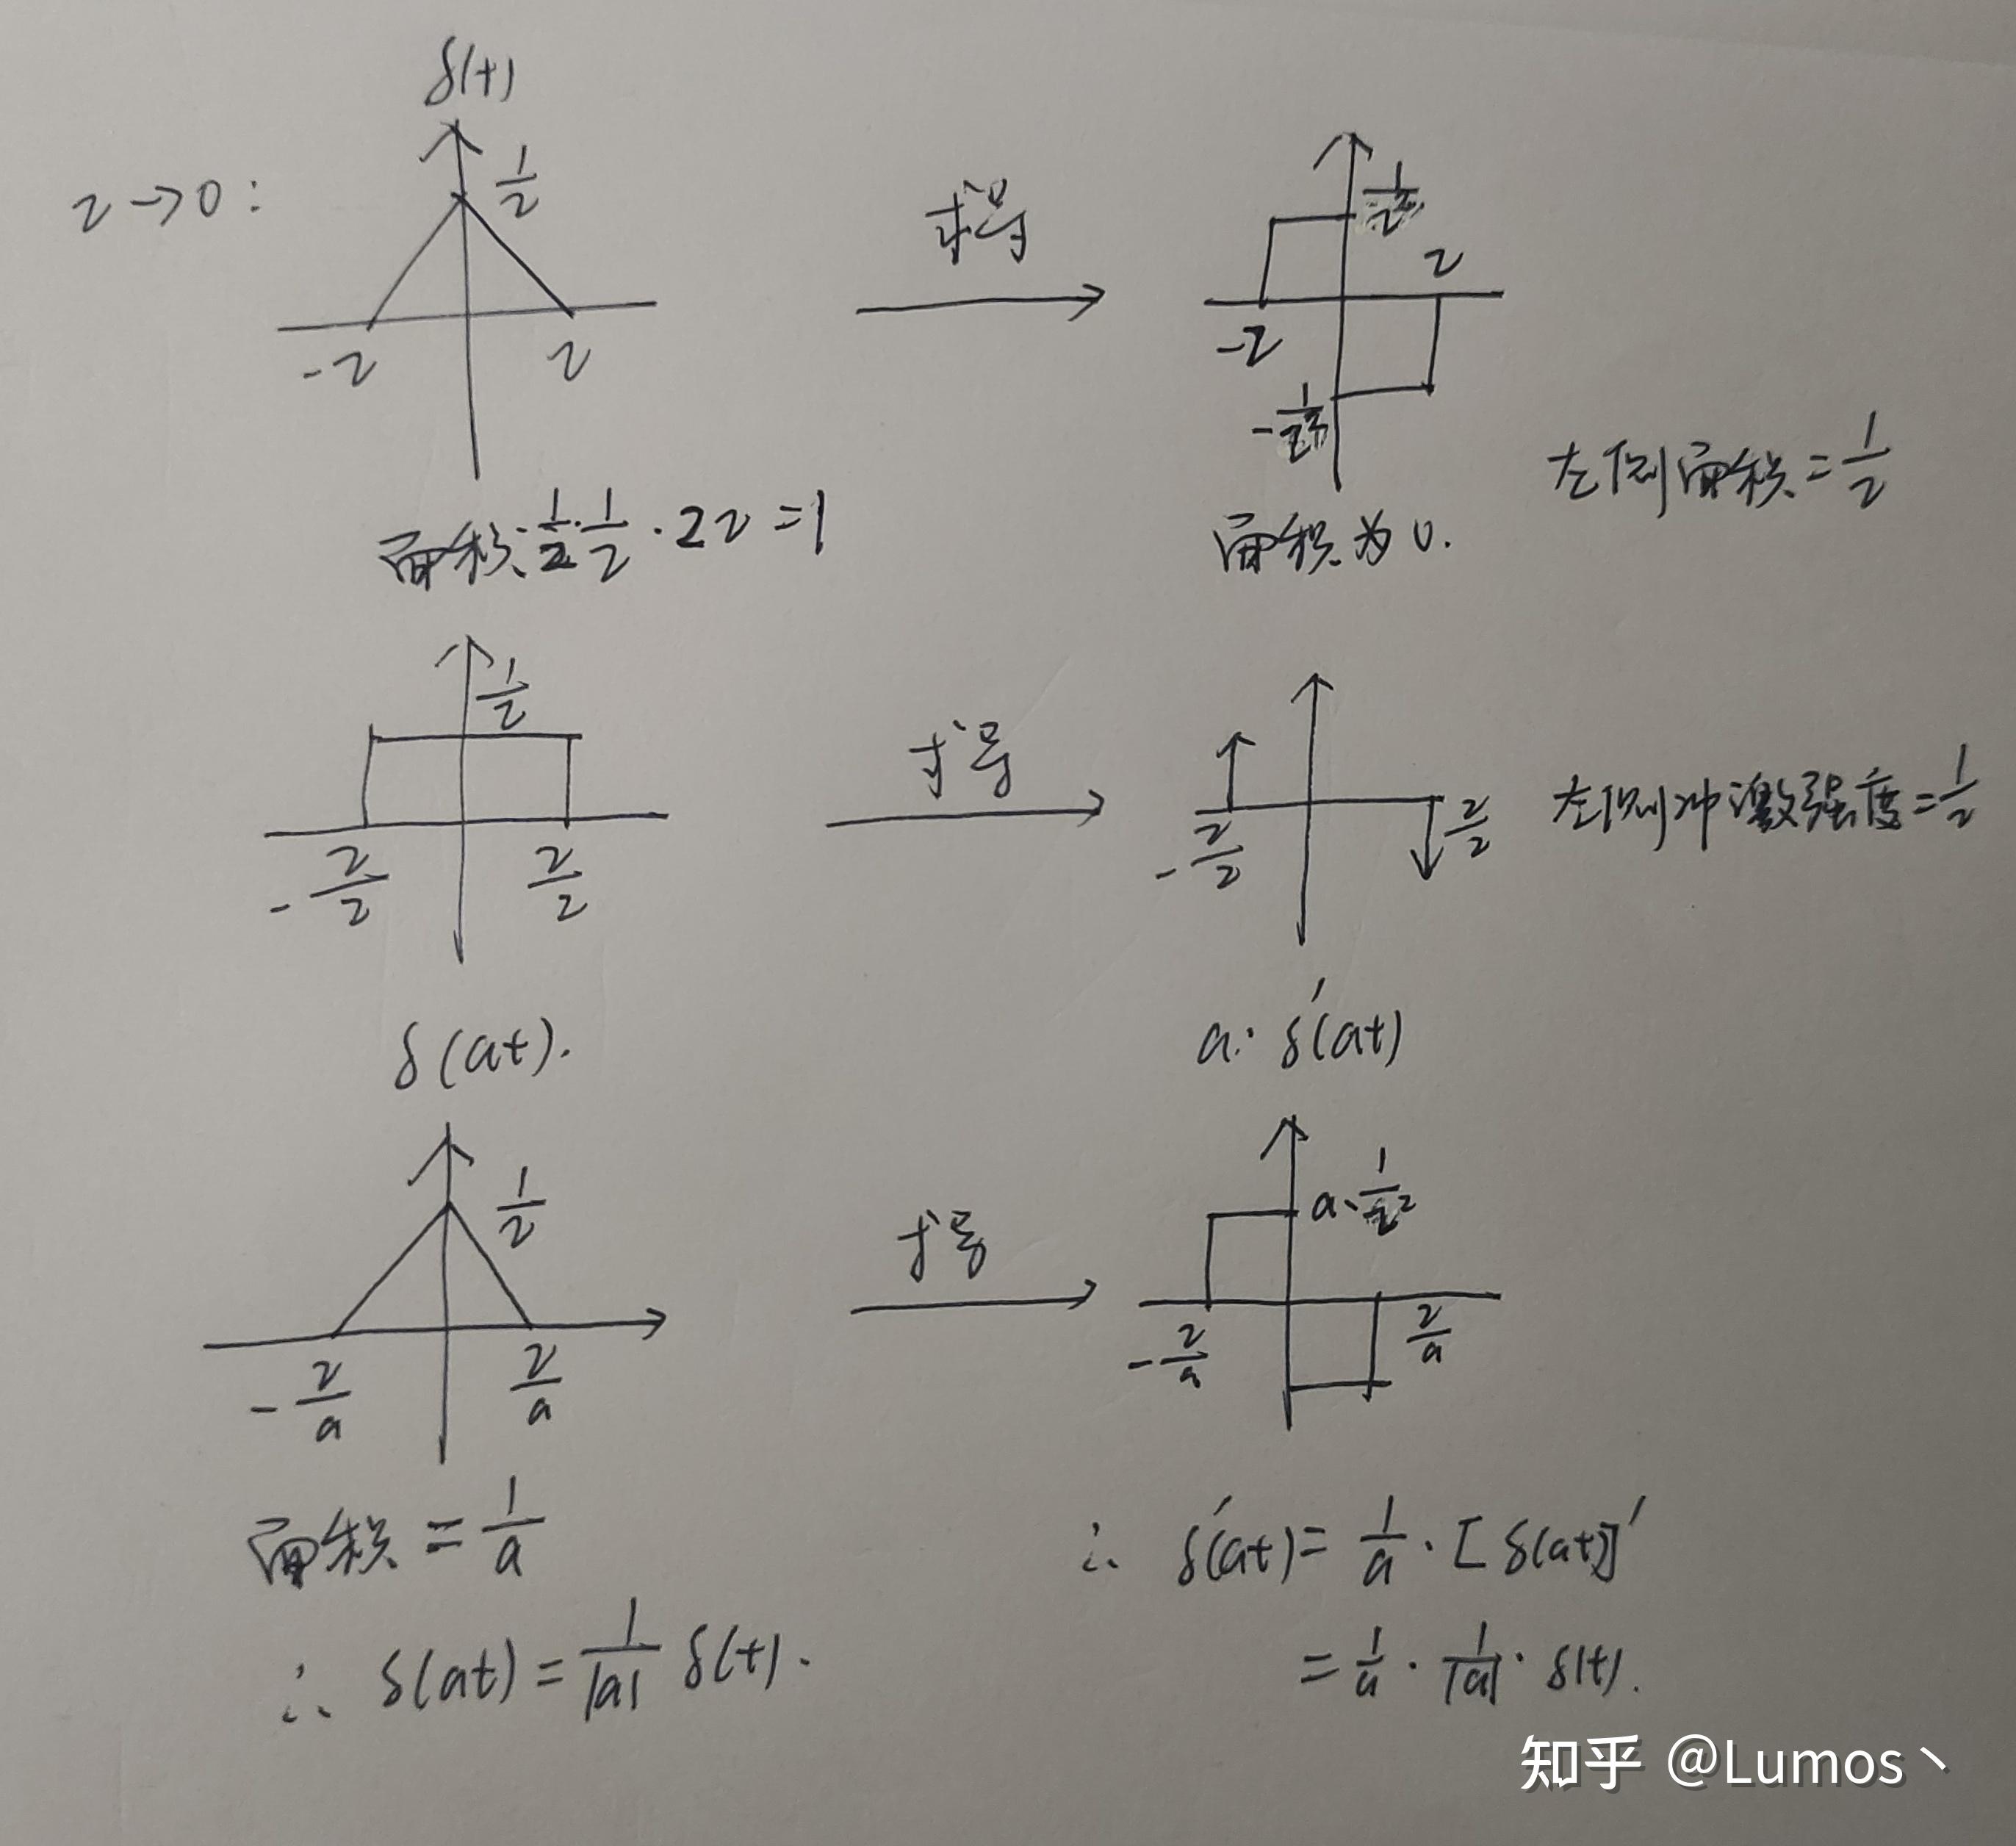 δ(t)
τ→0:
1/τ
-τ τ
求导
1/τ²
τ
-τ
-1/τ²
面积:1/2·1/τ·2τ=1
面积为0.
左侧面积=1/τ
1/τ
-τ/2 τ/2
求导
-τ/2 τ/2
左侧冲激强度=1/τ
δ(at).
a·δ'(at)
1/τ
-τ/a τ/a
求导
a·1/τ²
-τ/a τ/a
面积=1/a
∴ δ(at)=1/|a| δ(t).
∴ δ'(at)=1/a·[δ(at)]'
=1/a·1/|a|·δ(t).
知乎 @Lumos丶